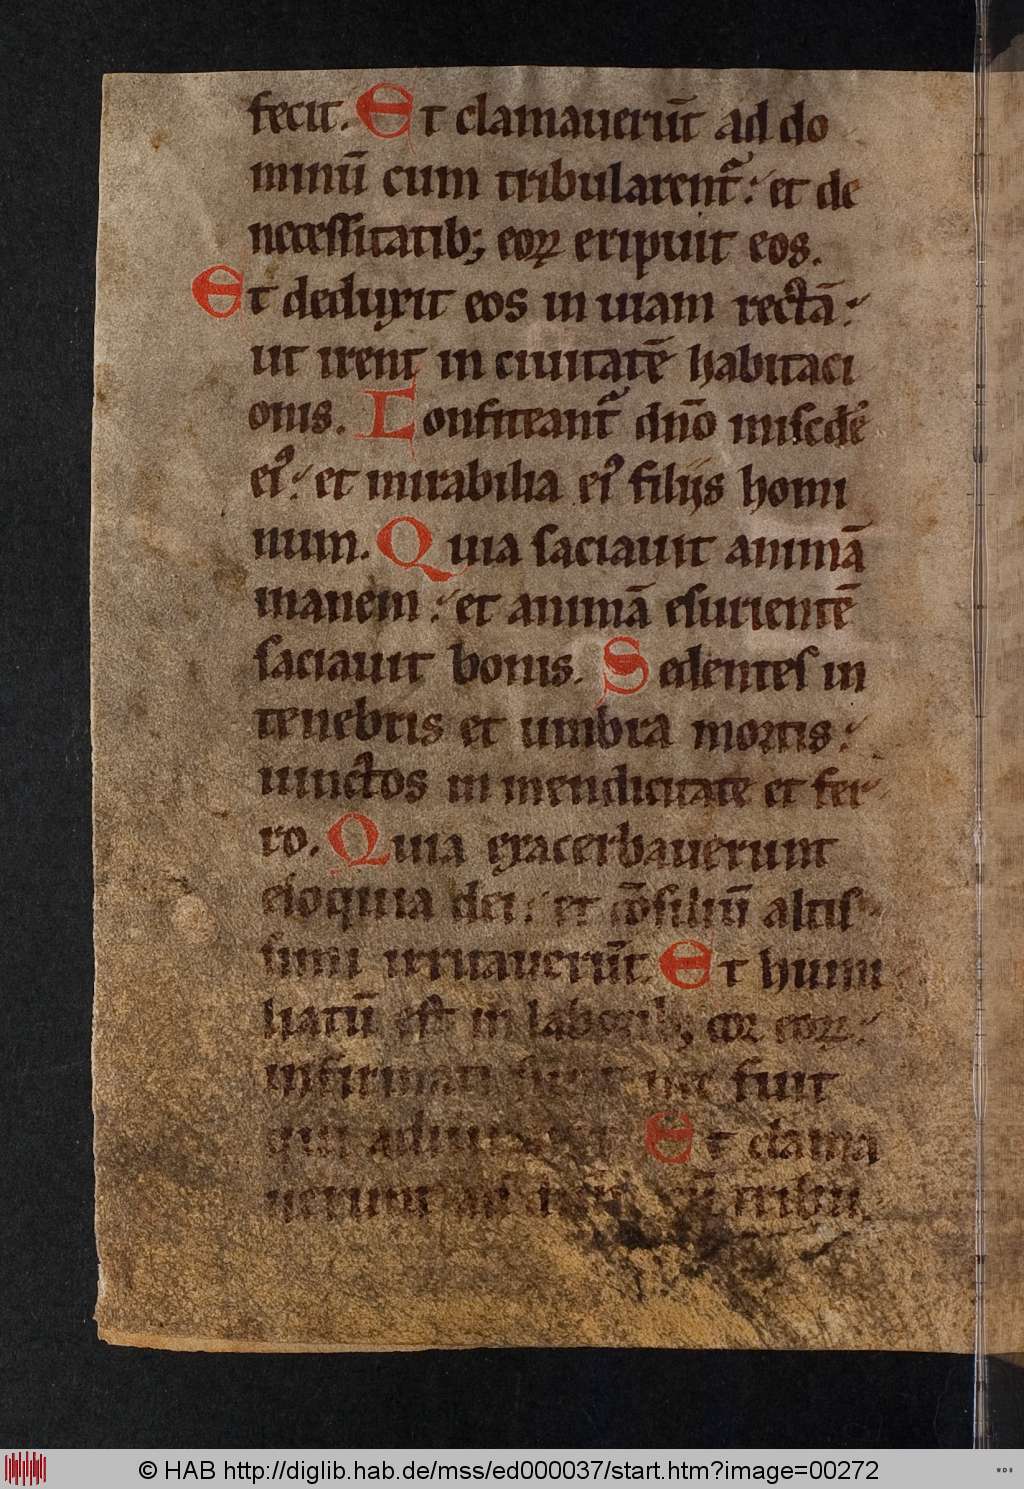 fecit. Et clamauerūt ad do
minū cum tribularent᷑: et de
necessitatib; eoꝝ eripuit eos.
Et deduxit eos in uiam rectā:
ut irent in ciuitatē habitaci
onis. Confiteant᷑ dn̄o misc̄dē
ei᷒: et mirabilia ei᷒ filijs homi
num. Quia saciauit animā
inanem: et animā esurientē
saciauit bonis. Sedentes in
tenebris et umbra mortis:
uinctos in mendicitate et fer
ro. Quia exacerbauerunt
eloquia dei: et cōsiliū altis
simi irritauerūt. Et humi
liatū est in laborib; cor eoꝝ:
infirmati sunt nec fuit
qui adiuu Et clama
uerunt ad cū tribu
© HAB http://diglib.hab.de/mss/ed000037/start.htm?image=00272